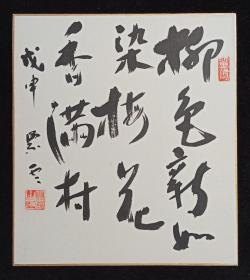 柳色新如
染梅花
香满村
戊申